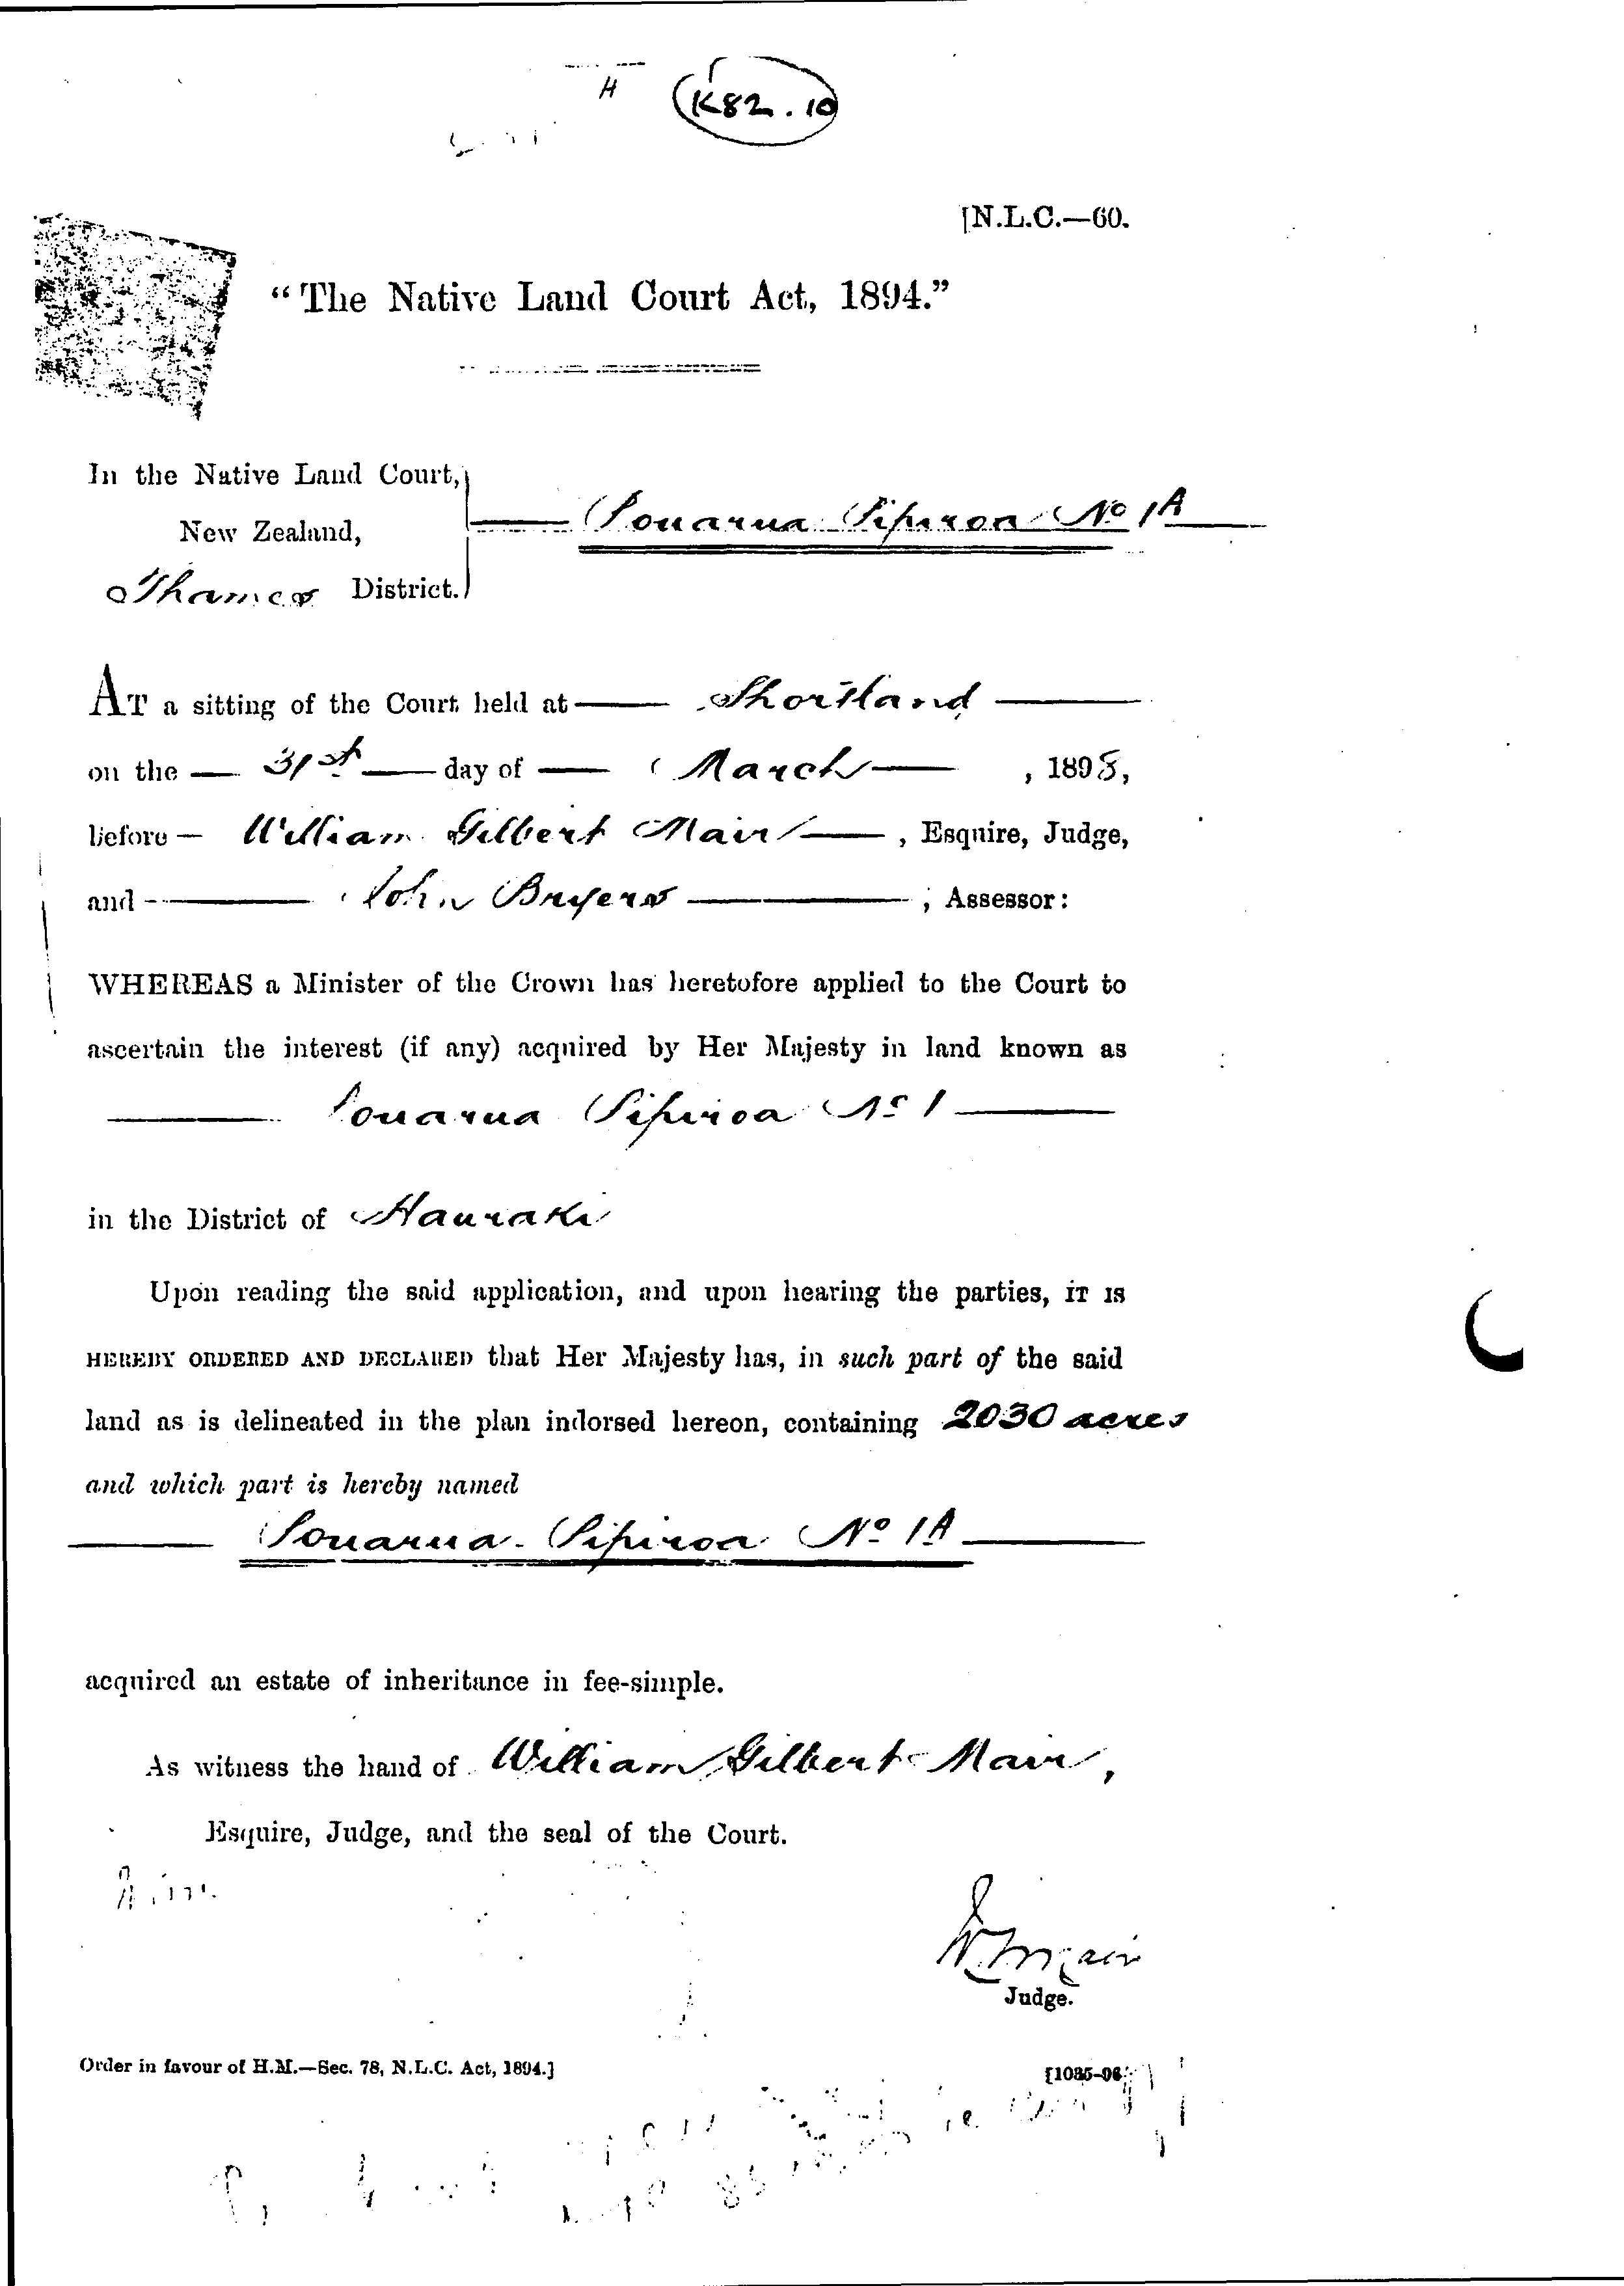 K82.10
[N.L.C.—60.
“The Native Land Court Act, 1894.”
In the Native Land Court,
New Zealand,
Thames District.
Pouarua Pipiroa No 1A
AT a sitting of the Court held at — Shortland —
on the — 31st — day of — March — , 1898,
before — William Gilbert Mair — , Esquire, Judge,
and — John Bryers — , Assessor:
WHEREAS a Minister of the Crown has heretofore applied to the Court to
ascertain the interest (if any) acquired by Her Majesty in land known as
— Pouarua Pipiroa No 1 —
in the District of Hauraki
Upon reading the said application, and upon hearing the parties, IT IS
HEREBY ORDERED AND DECLARED that Her Majesty has, in such part of the said
land as is delineated in the plan indorsed hereon, containing 2030 acres
and which part is hereby named
— Pouarua Pipiroa No 1A —
acquired an estate of inheritance in fee-simple.
As witness the hand of William Gilbert Mair,
Esquire, Judge, and the seal of the Court.
W. G. Mair
Judge.
Order in favour of H.M.—Sec. 78, N.L.C. Act, 1894.]
[1035–96